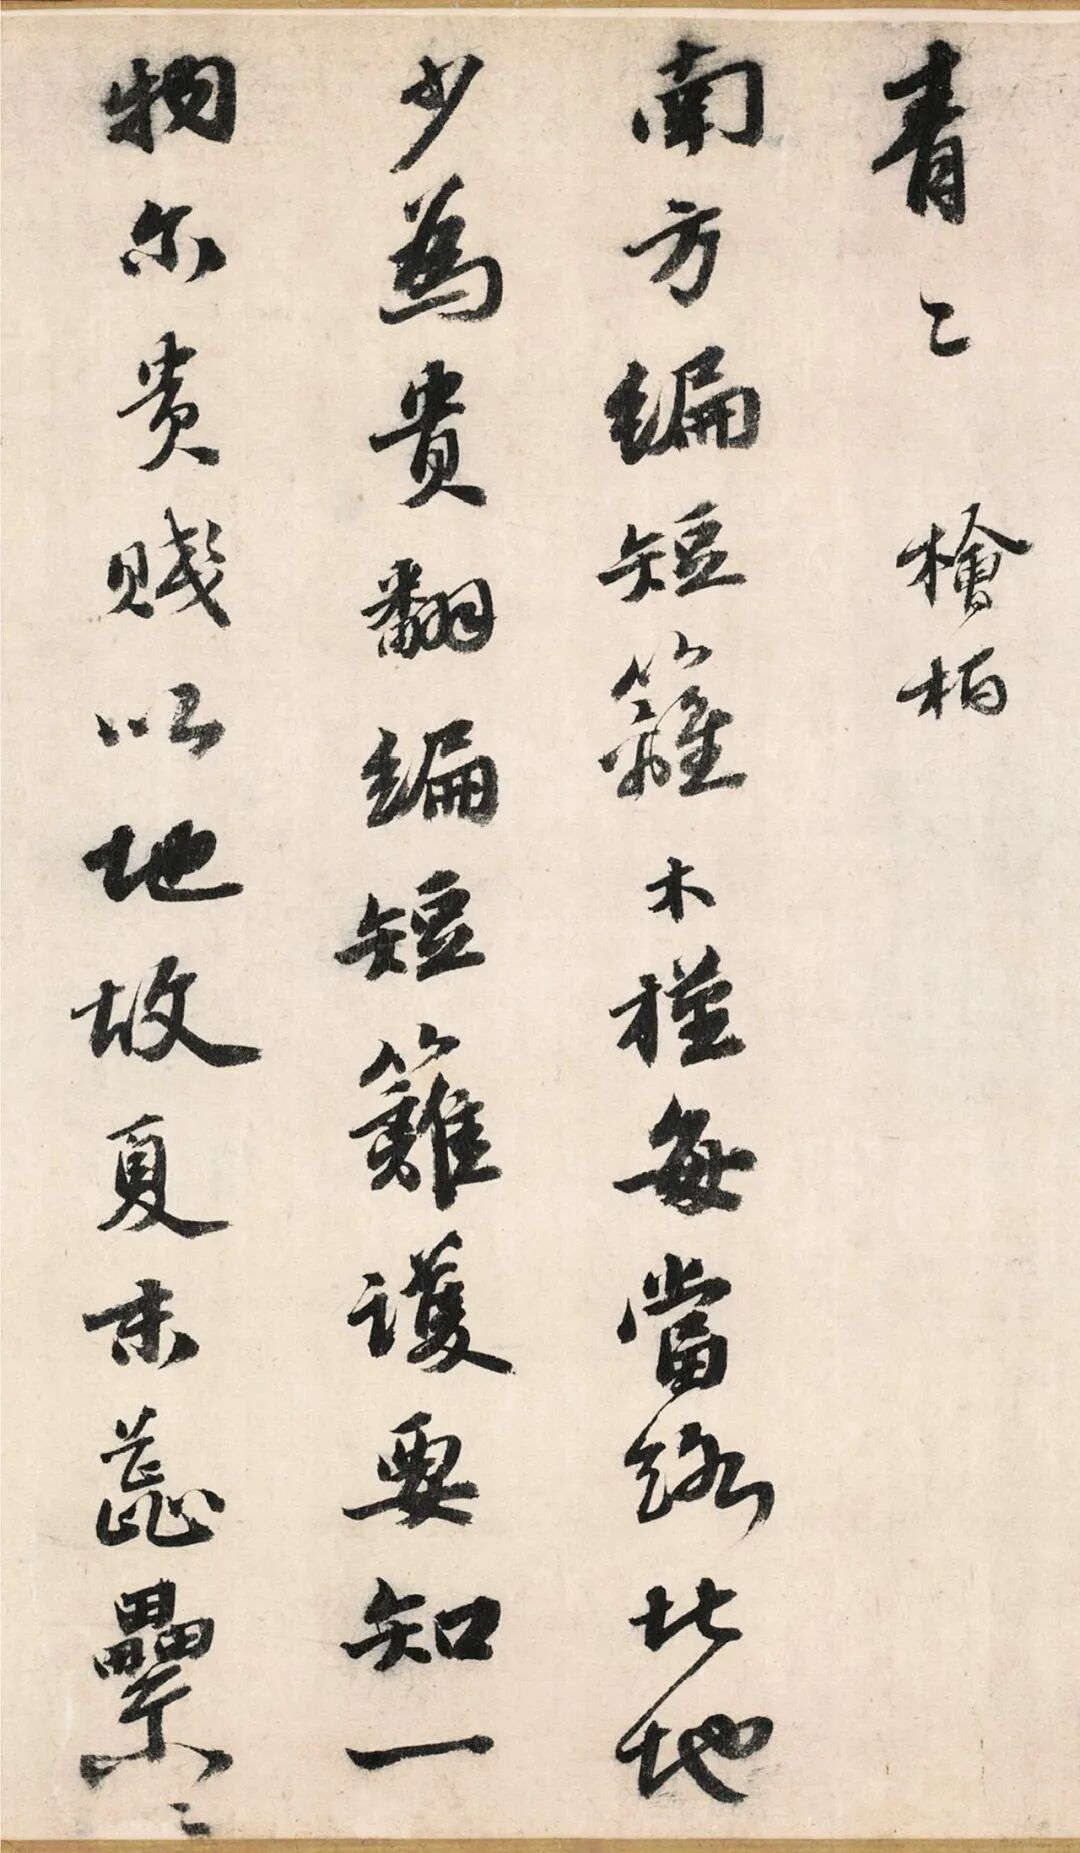 青〻 檜柏
南方編短籬木槿每當路北地
少為貴翻編短籬護要知一
物尔貴賤以地故夏末蕊纍〻